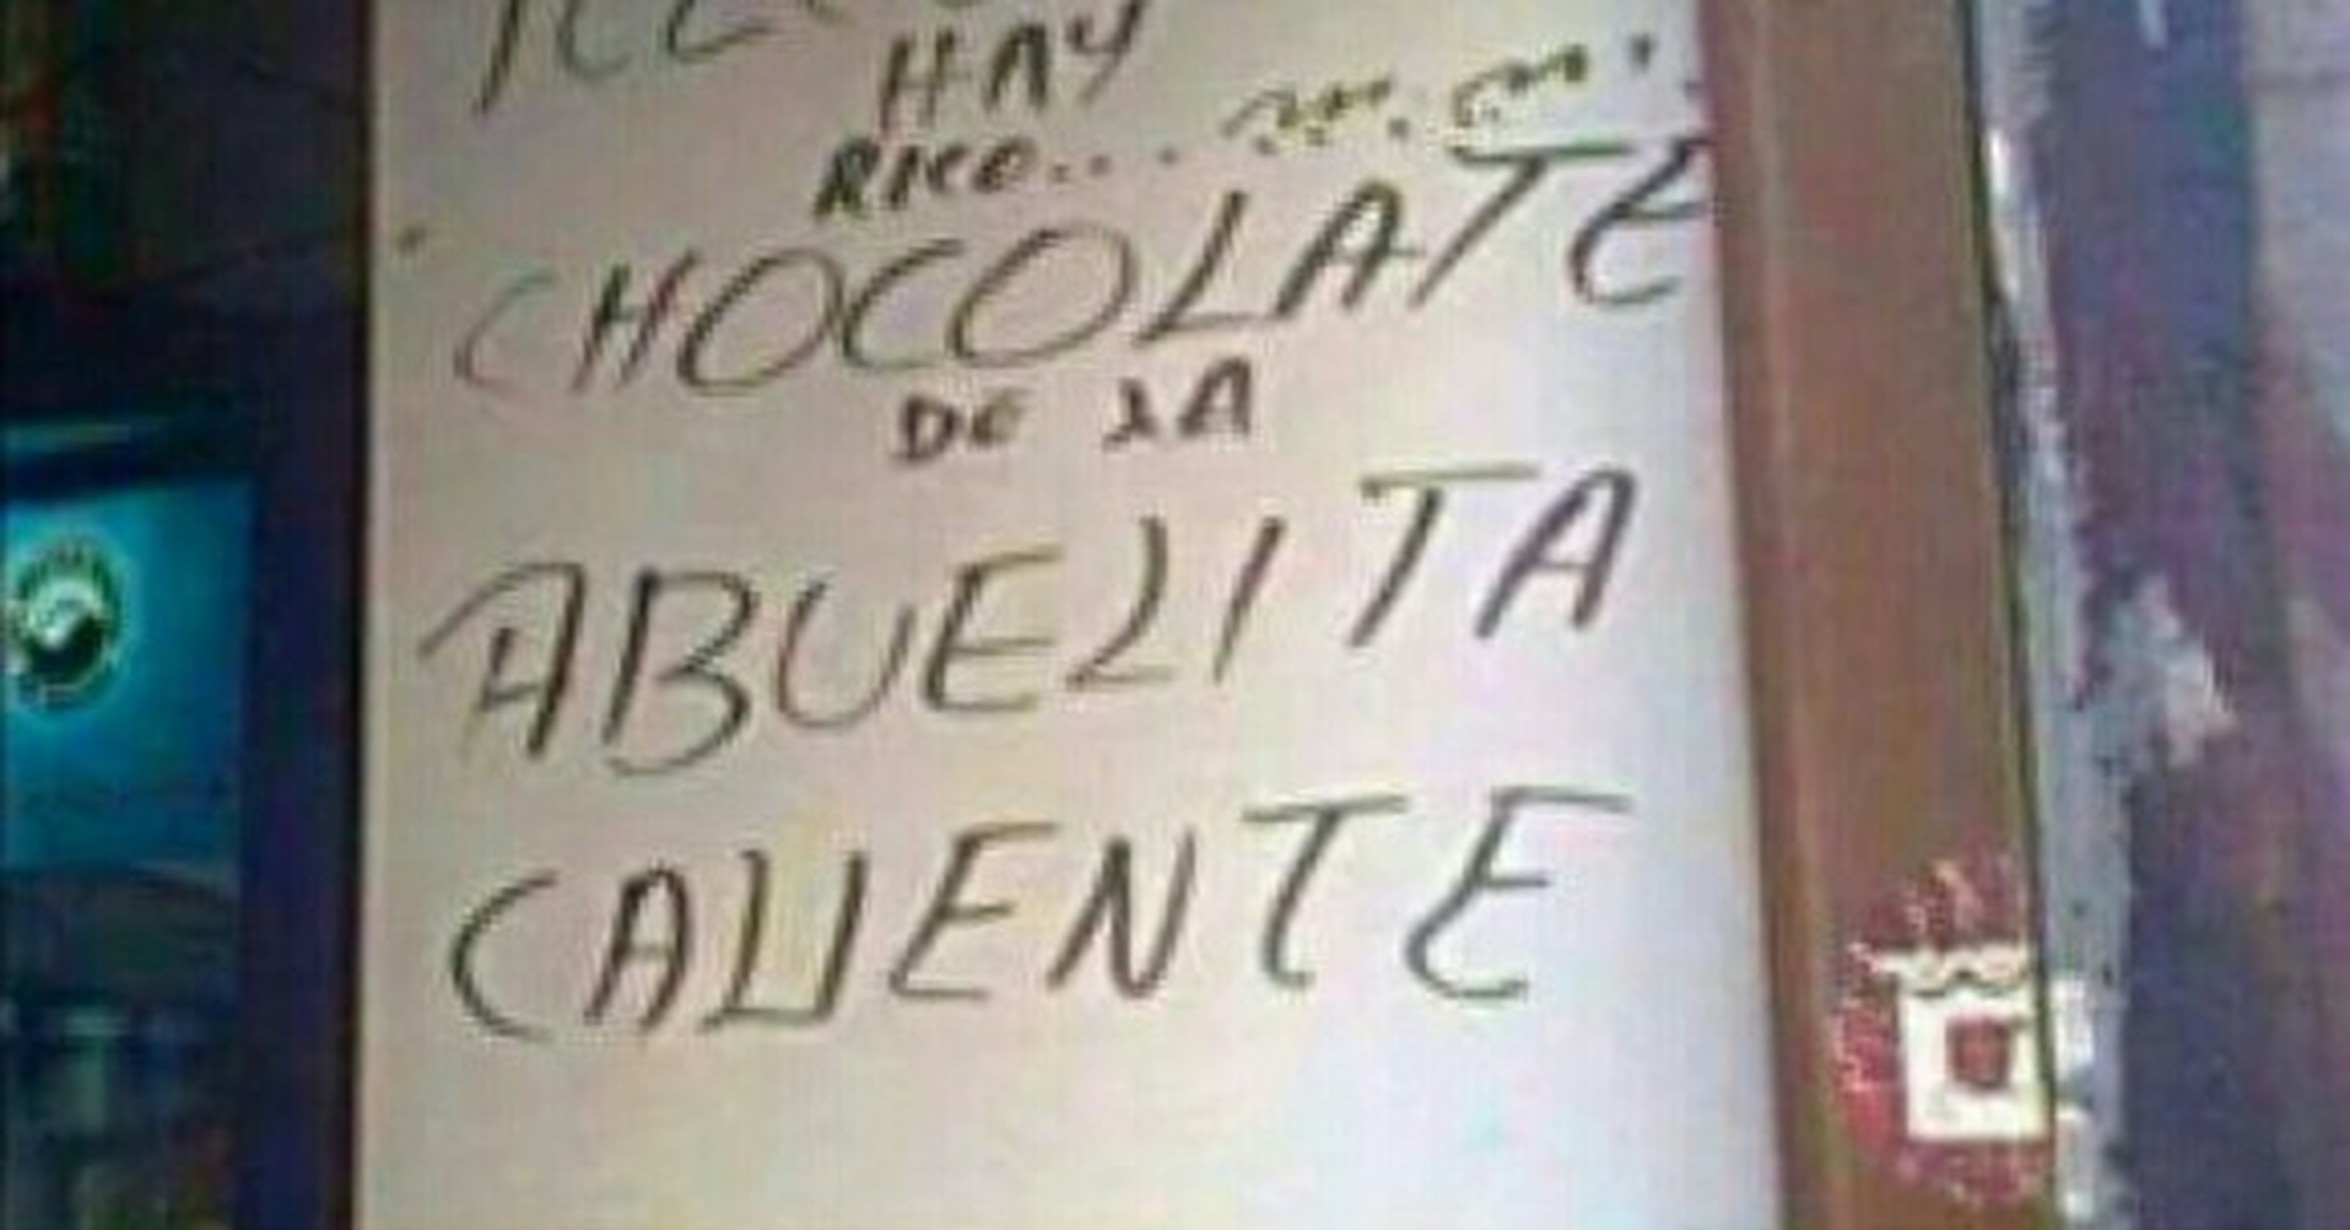 HAY
RICO....
CHOCOLATE
DE LA
ABUELITA
CALIENTE